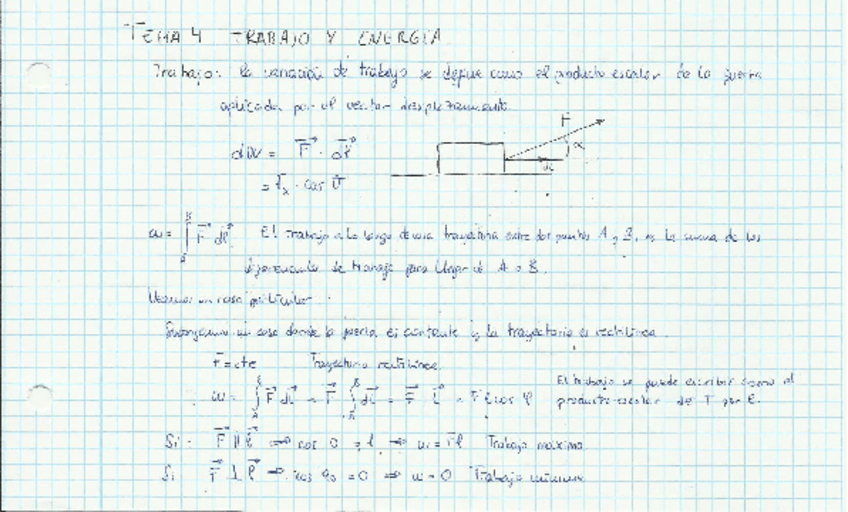 TEMA 4 TRABAJO Y ENERGÍA
Trabajo: la variación de trabajo se define como el producto escalar de la fuerza
aplicada por el vector desplazamiento
F
α
dl
dW = F⃗ · dl⃗
= Fx · cos
w = ∫ F⃗ dl⃗ El trabajo a lo largo de una trayectoria entre dos puntos A y B, es la suma de los
A B
diferenciales de trabajo para llegar de A a B.
Veamos un caso particular
Supongamos un caso donde la fuerza es constante y la trayectoria es rectilínea.
F = cte Trayectoria rectilínea
w = ∫ F⃗ dl⃗ = F⃗ ∫ dl⃗ = F⃗ l⃗ = F l cos φ El trabajo se puede escribir como el
producto escalar de F por l.
Si F⃗ || l⃗ ⇒ cos 0 = 1 ⇒ w = F l Trabajo máximo
Si F⃗ ⊥ l⃗ ⇒ cos 90 = 0 ⇒ w = 0 Trabajo mínimo